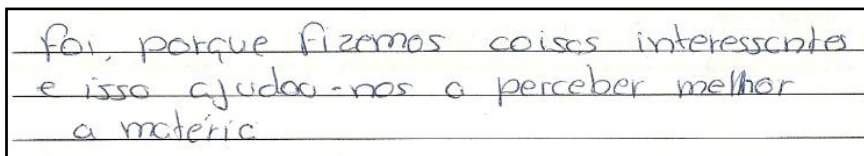 foi, porque fizemos coisas interessantes
e isso ajudou-nos a perceber melhor
a matéria